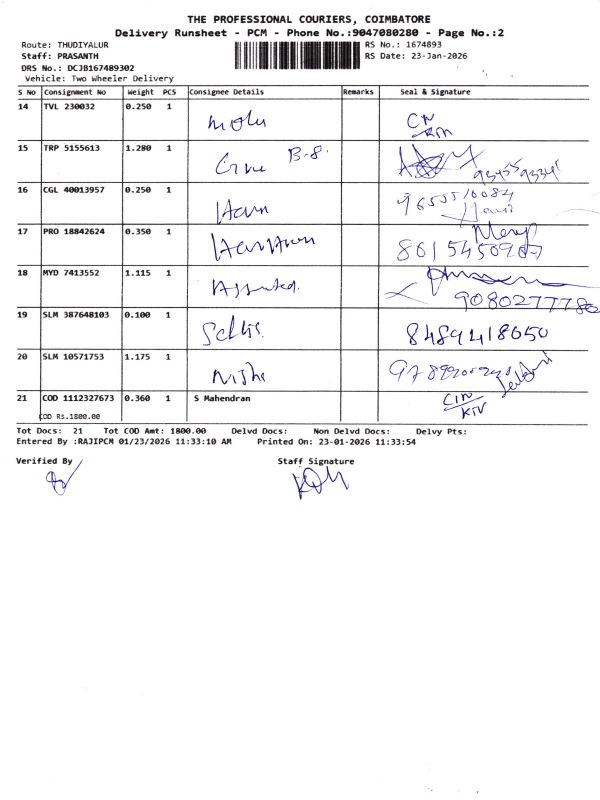 THE PROFESSIONAL COURIERS, COIMBATORE
Delivery Runsheet - PCM - Phone No.:9047080280 - Page No.:2
Route: THUDIYALUR RS No.: 1674893
Staff: PRASANTH RS Date: 23-Jan-2026
DRS No.: DCJB167489302
Vehicle: Two Wheeler Delivery
S No Consignment No Weight PCS Consignee Details Remarks Seal & Signature
14 TVL 230032 0.250 1
15 TRP 5155613 1.280 1 B-8.
16 CGL 40013957 0.250 1
17 PRO 18842624 0.350 1
18 MYD 7413552 1.115 1
9080277780
19 SLM 387648103 0.100 1 8489418050
20 SLM 10571753 1.175 1
21 COD 1112327673 0.360 1 S Mahendran
COD Rs.1800.00
Tot Docs: 21 Tot COD Amt: 1800.00 Delvd Docs: Non Delvd Docs: Delvy Pts:
Entered By :RAJIPCM 01/23/2026 11:33:10 AM Printed On: 23-01-2026 11:33:54
Verified By Staff Signature